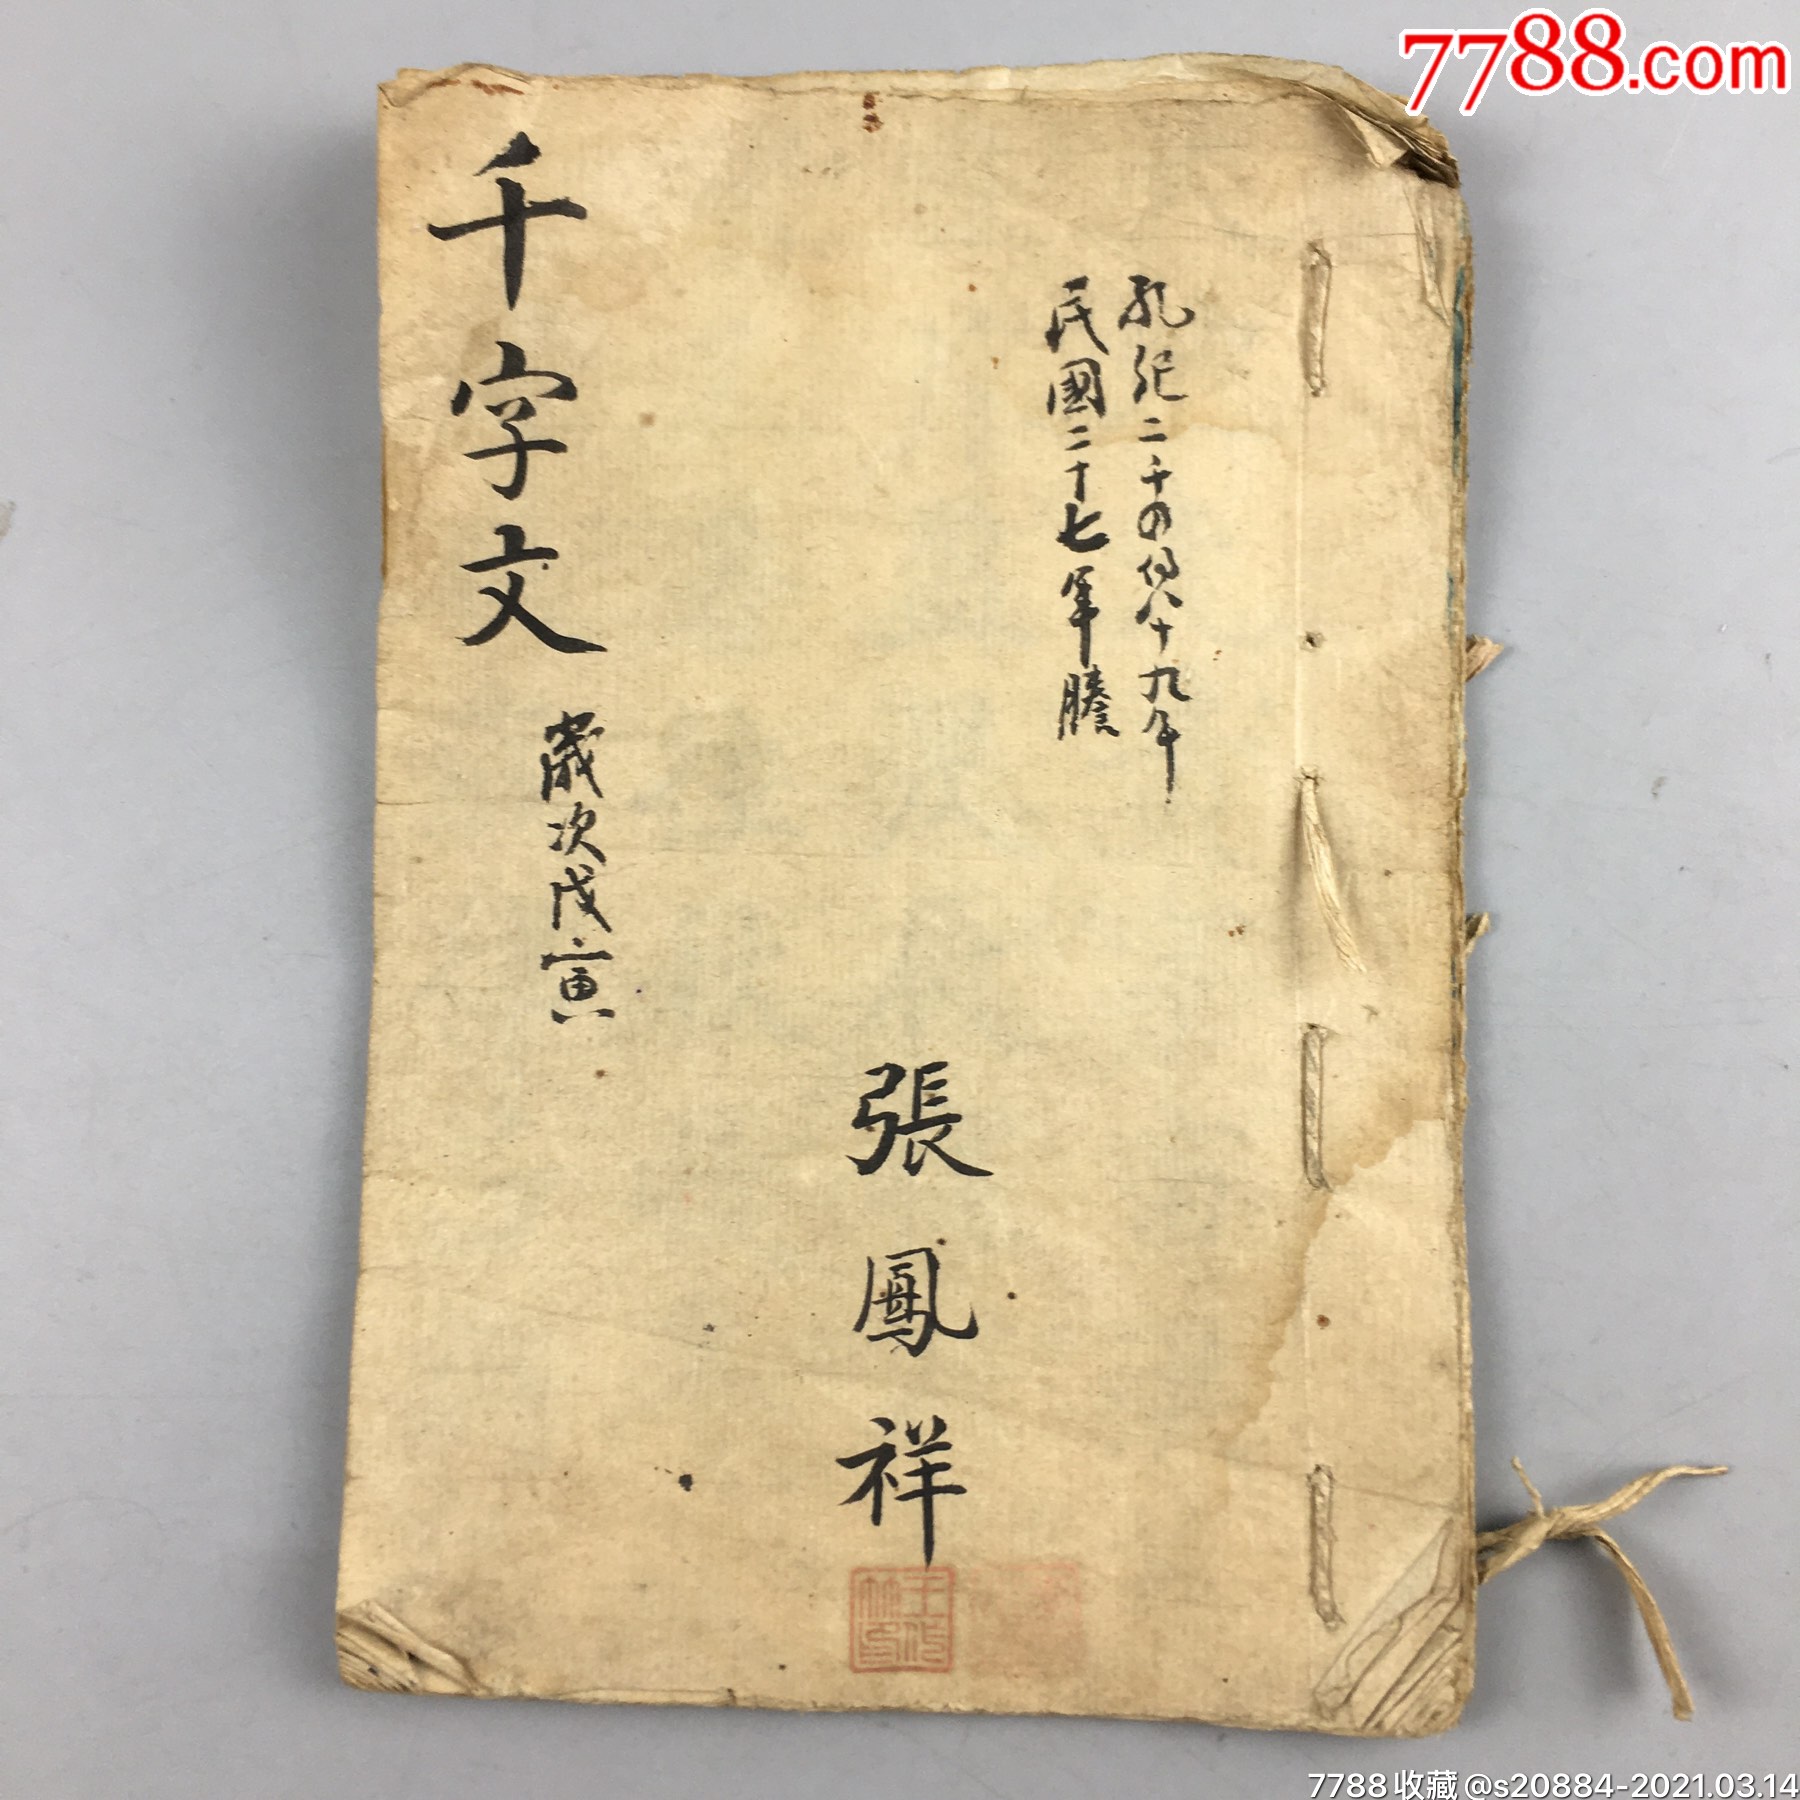 7788.com
孔紀二千四佰八十九年
民國二十七年謄
張鳳祥
千字文
歲次戊寅
7788收藏@s20884-2021.03.14